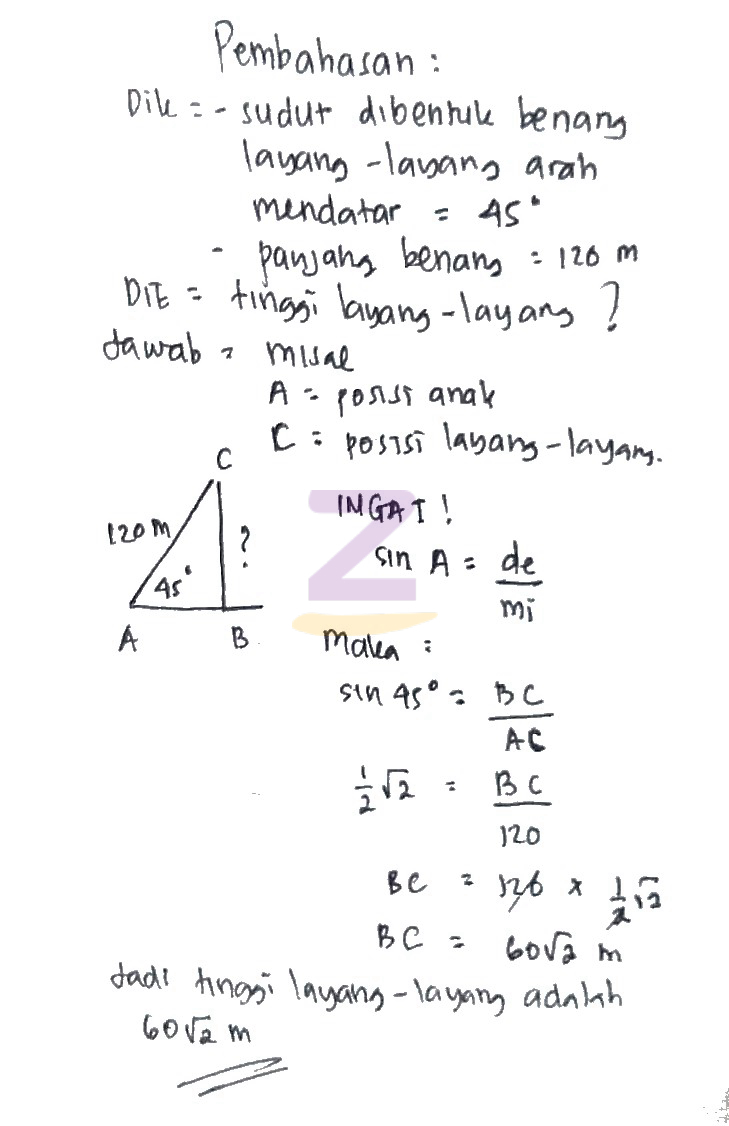 Pembahasan :
Dik = - sudut dibentuk benang
layang-layang arah
mendatar = 45°
- panjang benang = 120 m
DIT = tinggi layang-layang ?
Jawab = misal
A = posisi anak
C = posisi layang-layang.
C
120 m
?
45°
A
B
INGAT !
sin A = de/mi
Maka :
sin 45° = BC/AC
1/2 √2 = BC/120
BC = 120 x 1/2 √2
BC = 60√2 m
Jadi tinggi layang-layang adalah
60√2 m